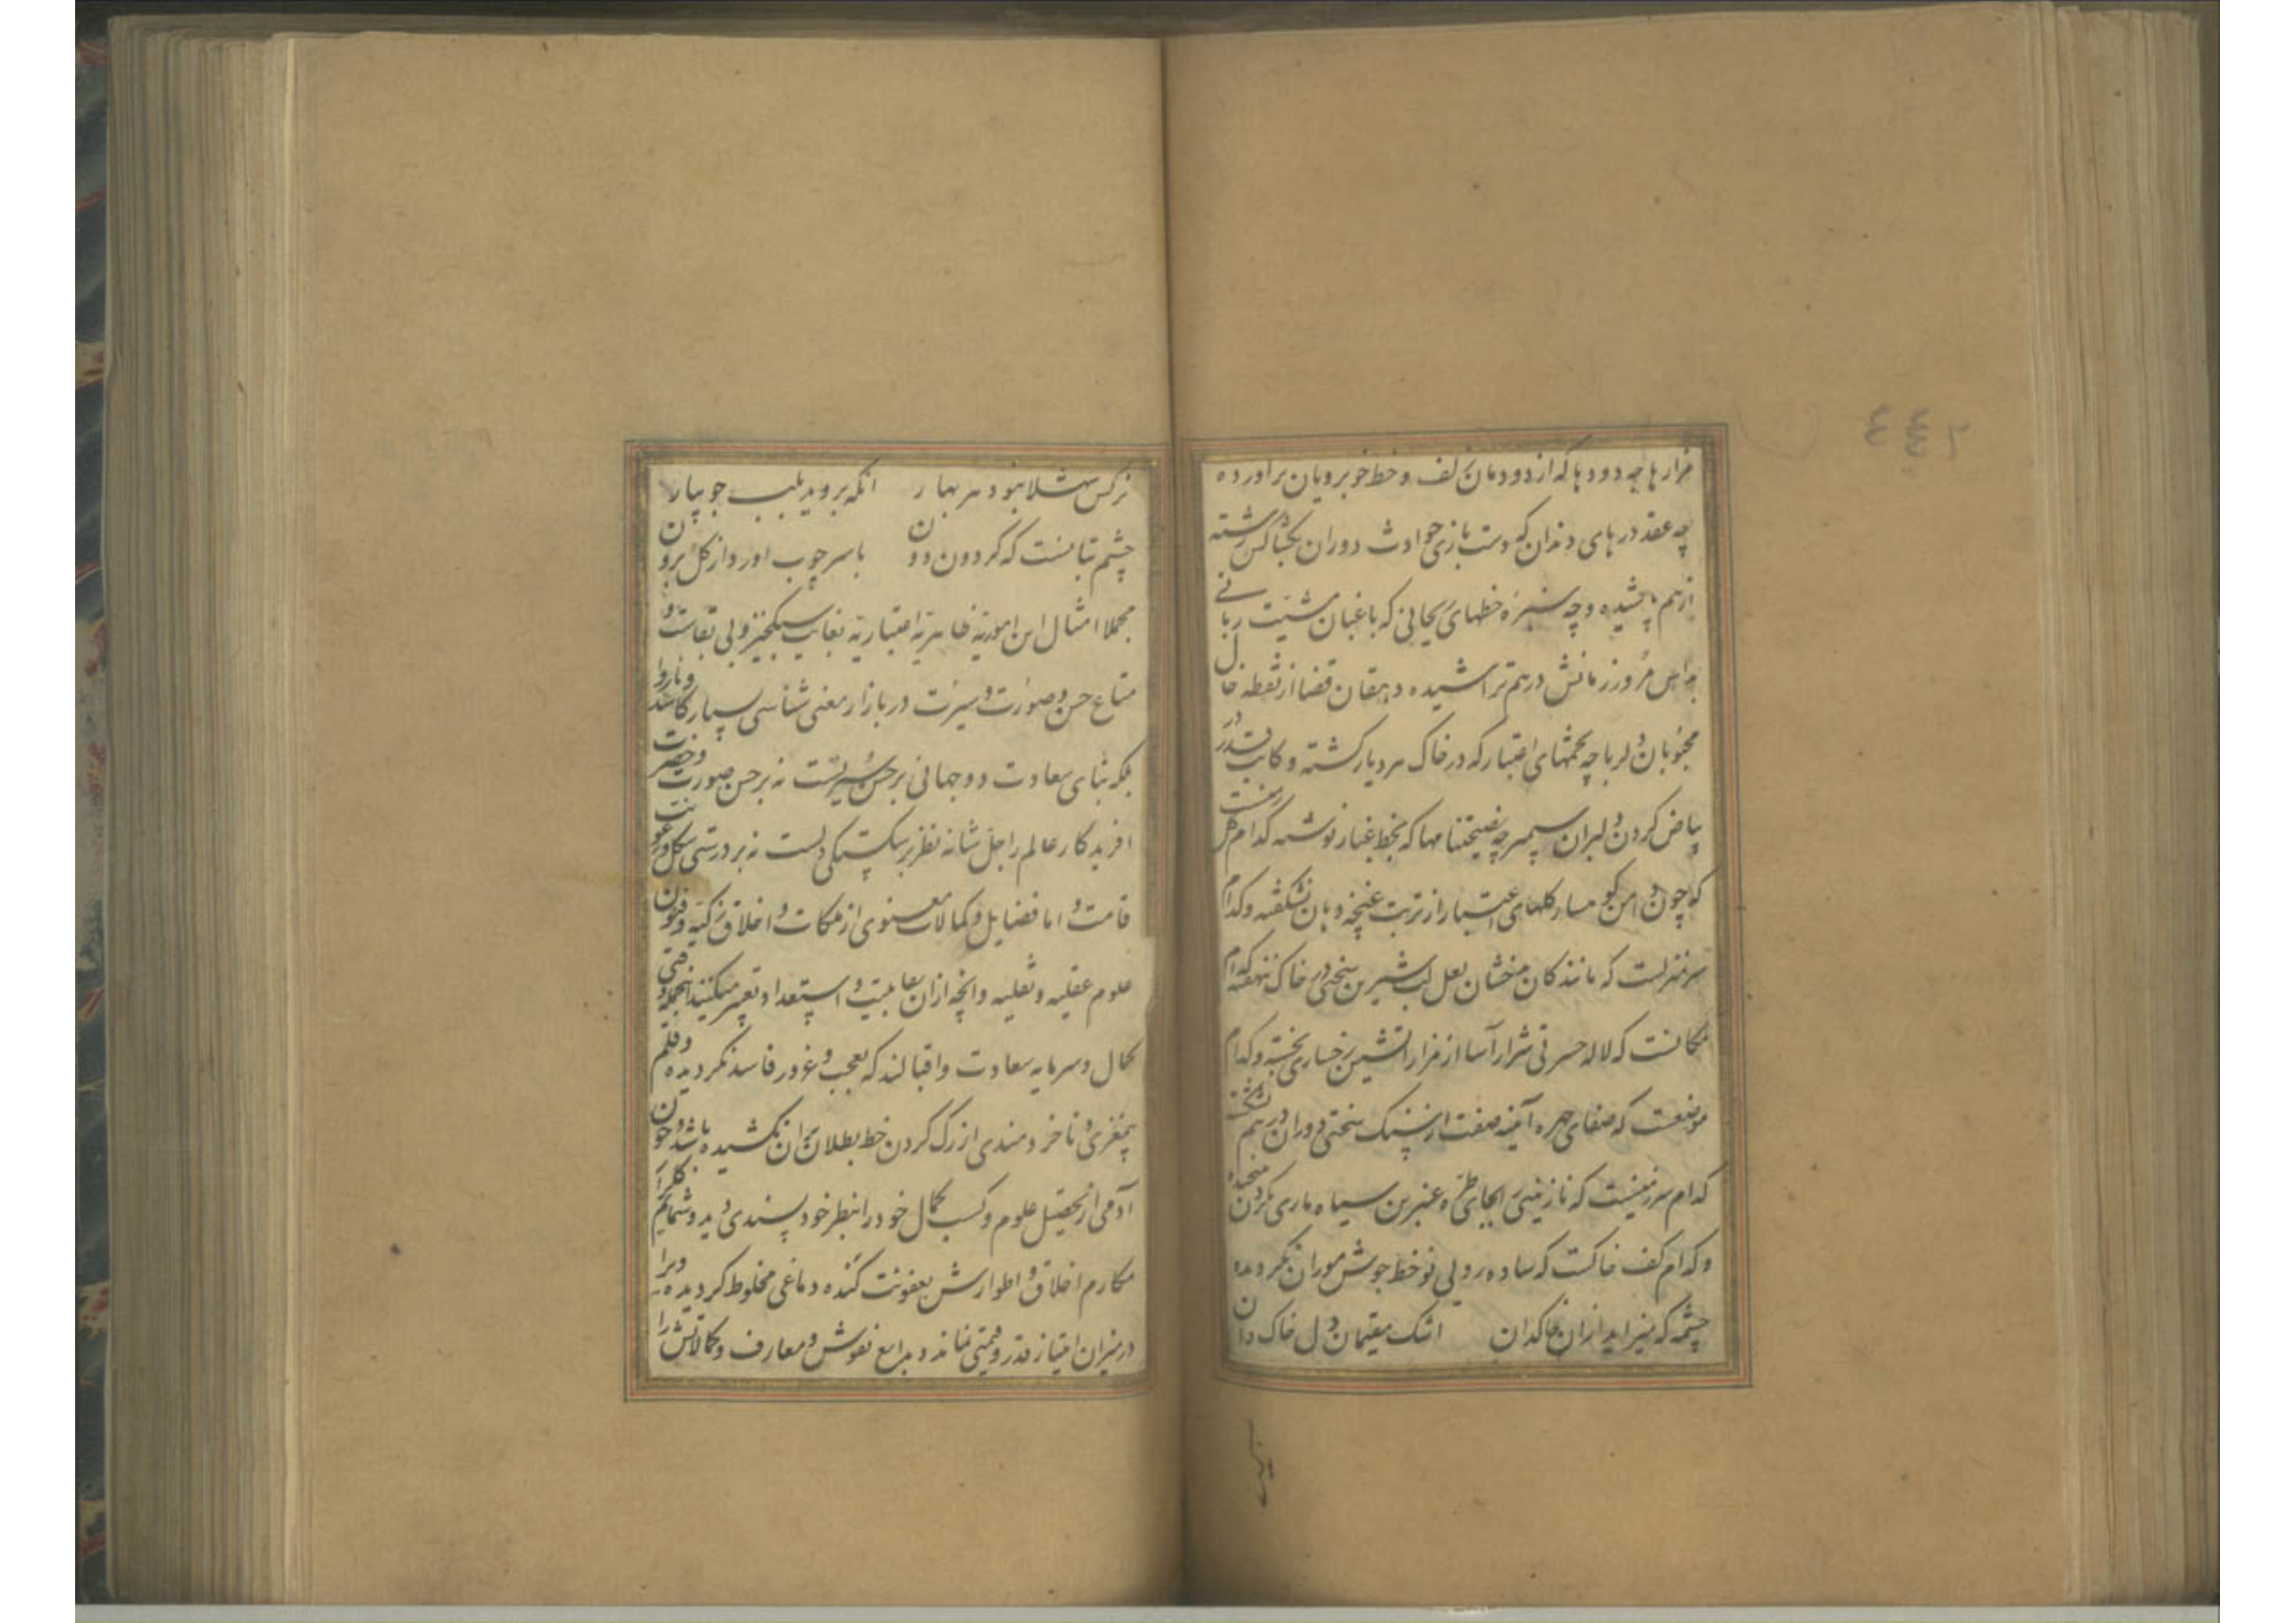 مزارها چه دودها که از دودمان زلف و خط خوبرویان براورده
چه عقد درهای دندان که دست بازی حوادث دوران بکشاکش رشته
ازهم پاشیده و چه سبزه خطهای ریحانی که باغبان مشیت ربانی
بداس مرور زمانش درهم تراشیده دهقان قضا از نقطه خال
محبوبان دلربا چه تخمهای اعتبار که در خاک هر دیار کشته و کاتب قدر در
بیاض کردن دلبران سیمبر چه نصیحتنامها که بخط غبار نوشته کدام گل زمینست
که چون دامن کهسار کلهای اعتبار از تربت غنچه دهانی نشکفته و کدام
سرمنزلست که مانند کان بدخشان لعل لب شیرین سخنی در خاک ننهفته کدام
مکانست که لاله حسرتی شرارآسا از مزار آتشین رخساری نجسته و کدام
موضعست که صفای چهره آینه صفت از سنک سختی دوران درهم نشکسته
کدام سرزمینست که نازنینی را بجای طره عنبرین سیاه ماری بکردن نپیچیده
و کدام کف خاکست که ساده رویی نوخط جوش موران نکردیده
چشمه که میزاید ازان خاکدان اشک مقیمان دل خاک دان
نرکس شهلا نبود هر بهار انکه بروید بلب جویبار
چشم بتانست که کردون دون با سر چوب اورد از کل برون
مجملا امثال این امور ظاهریه اعتباریه بغایت سبکخیز و بی بقاست و
متاع حسن و صورت و سیرت در بازار معنی شناسی بسیار کاسد و ناروا
بلکه بنای سعادت دوجهانی بر حسن سیرتست نه بر حسن صورت و حضرت
افریدکار عالم را جل شانه نظر بر شکستکی دلست نه بر درستی شکل و رعونت
قامت و اما فضایل و کمالات معنوی از ملکات و اخلاق زکیه و فنون
علوم عقلیه و نقلیه و انچه ازان بقابلیت و استعداد تعبیر میکنند انجمله وقتی
کمال و سرمایه سعادت و اقبالند که بعجب و غرور فاسد نکردیده و قلم
بیمغزی و ناخردمندی از رک کردن خط بطلان بران نکشیده باشد و چون
آدمی از تحصیل علوم و کسب کمال خود را بنظر خودپسندی دید و شمایم
مکارم اخلاق و اطوارش بعفونت کنده دماغی مخلوط کردیده ویرا
در میزان امتیاز قدر و قیمتی نماند و بدایع نقوش و معارف و کمالاتش را